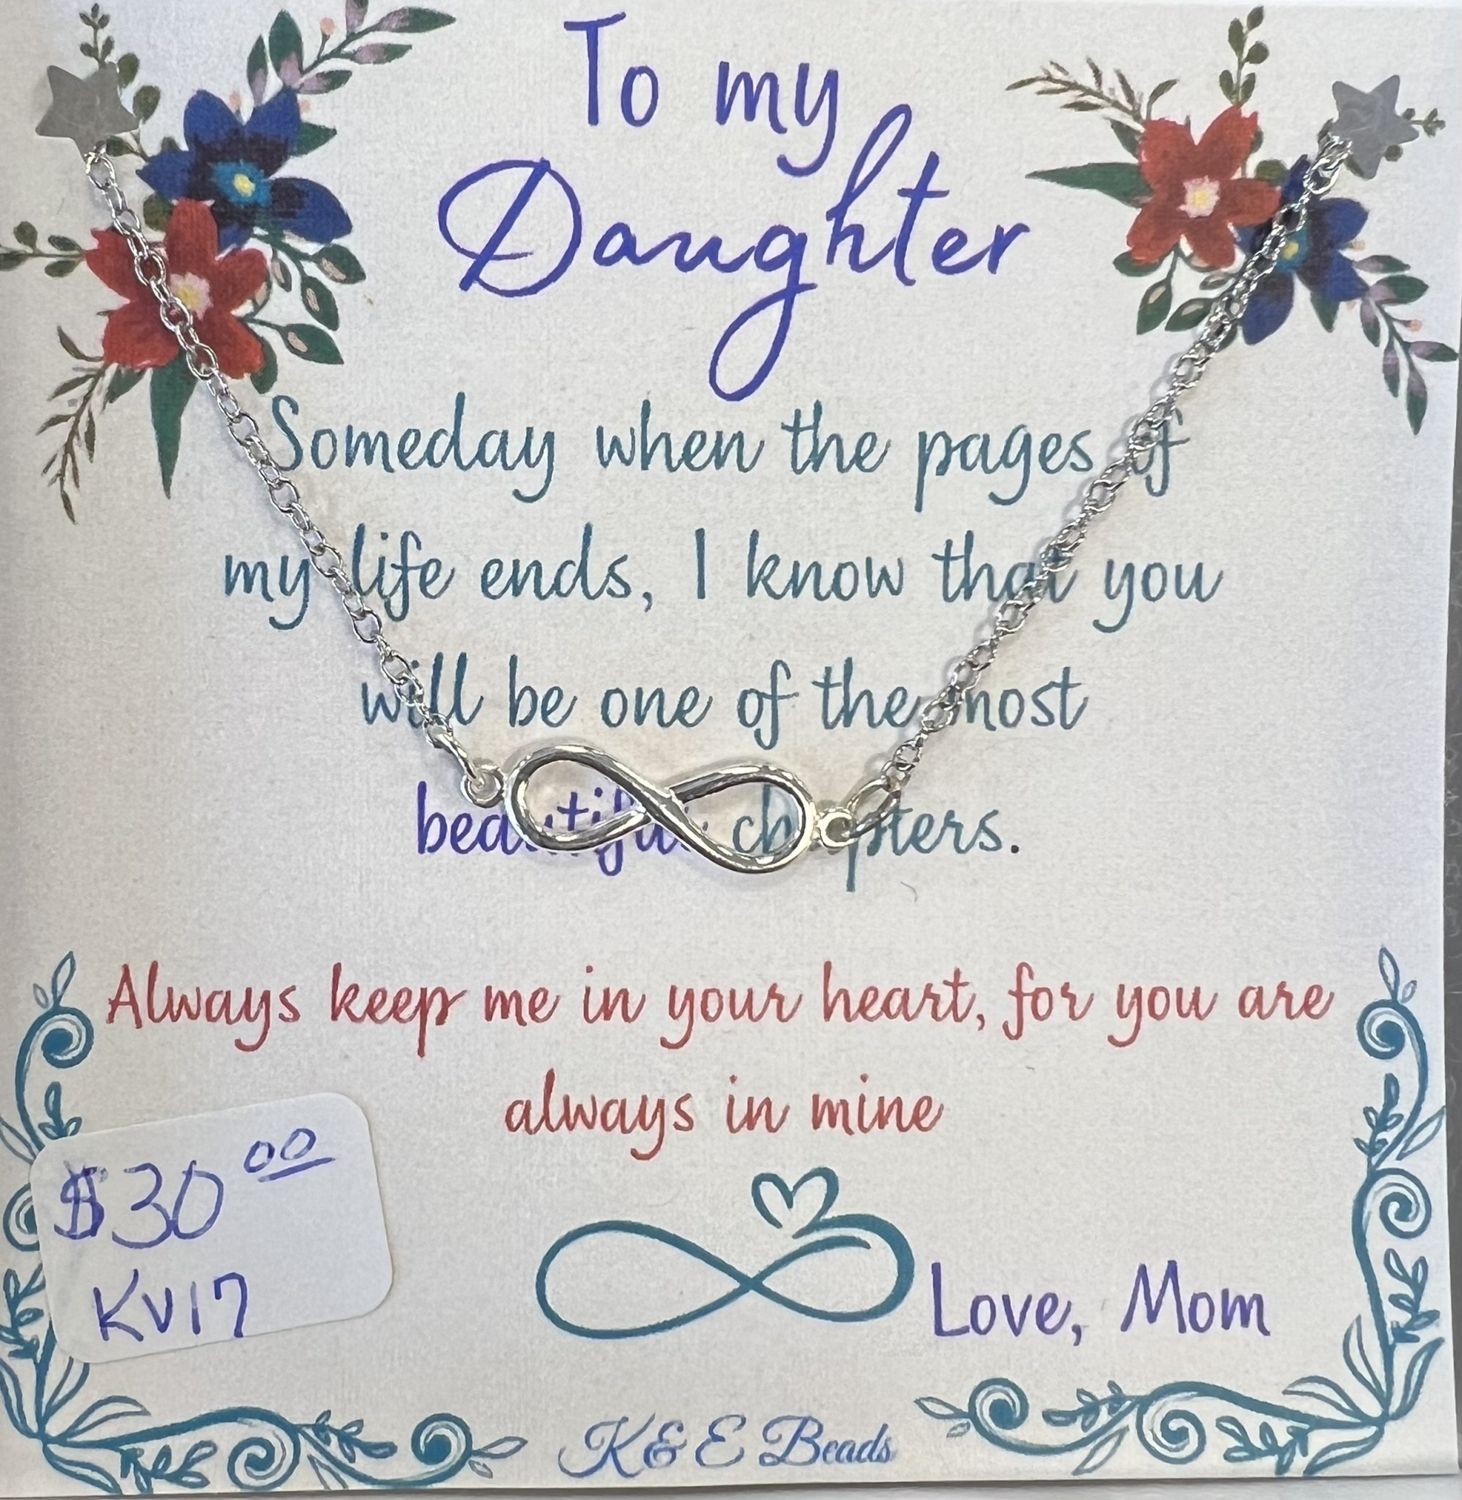 To my
Daughter
Someday when the pages of
my life ends, I know that you
will be one of the most
beautiful chapters.
Always keep me in your heart, for you are
always in mine
$30.00
KV17
Love, Mom
K&E Beads